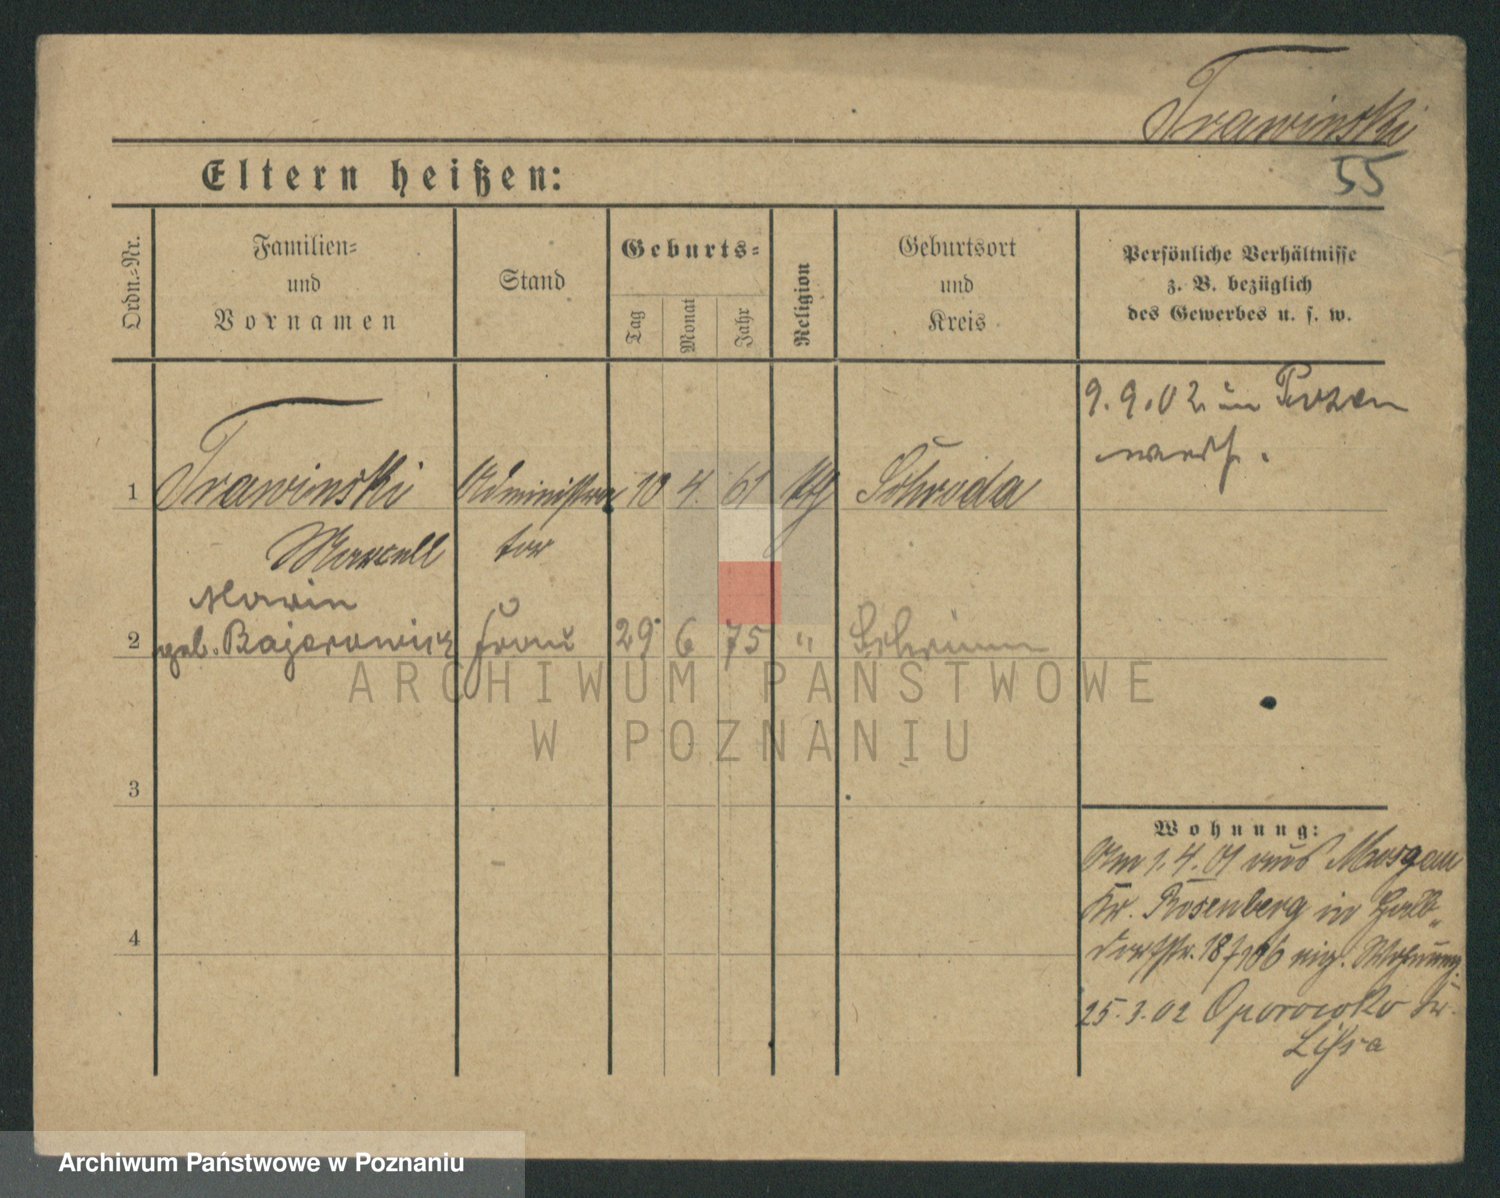 Trawinski
55
Eltern heißen:
Ordn.-Nr.
Familien-
und
Vornamen
Stand
Geburts-
Tag
Monat
Jahr
Religion
Geburtsort
und
Kreis
Persönliche Verhältnisse
z. B. bezüglich
des Gewerbes u. s. w.
9.9.02 in Posen
1 Trawinski Administra 10 4. 61 kth Schroda
Marcell tor
Marie
2 geb. Bajerowicz Frau 29. 6 75 " Schrimm
ARCHIWUM PAŃSTWOWE
W POZNANIU
3
Wohnung:
Am 1.4.01 aus
Kr. Rosenberg in Halb-
dorfstr. 18 eig. Wohnung.
4
25.3.02 Oporowko Kr.
Lissa
Archiwum Państwowe w Poznaniu